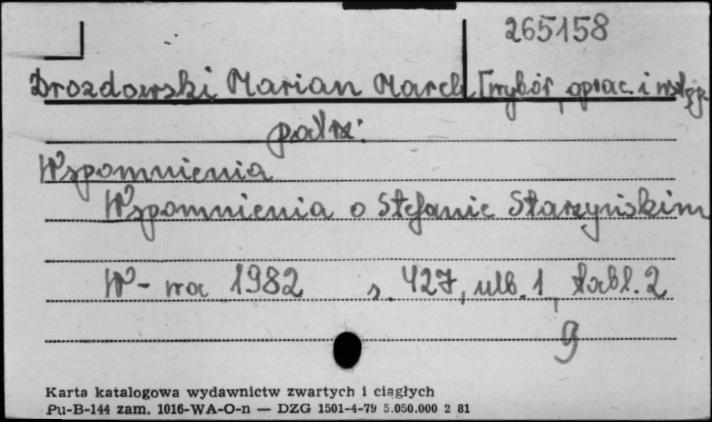 265158
Drozdowski Marian Marek [wybór, oprac. i wstęp
patrz:
Wspomnienia
Wspomnienia o Stefanie Starzyńskim
W-wa 1982 s. 427, nlb. 1, tabl. 2
g
Karta katalogowa wydawnictw zwartych i ciągłych
Pu-B-144 zam. 1016-WA-O-n — DZG 1501-4-79 5.050.000 2 81